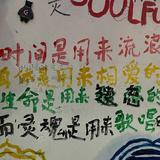 灵 SOULFU
时间是用来流浪
身体是用来相爱的
生命是用来遗忘的
而灵魂是用来歌唱的